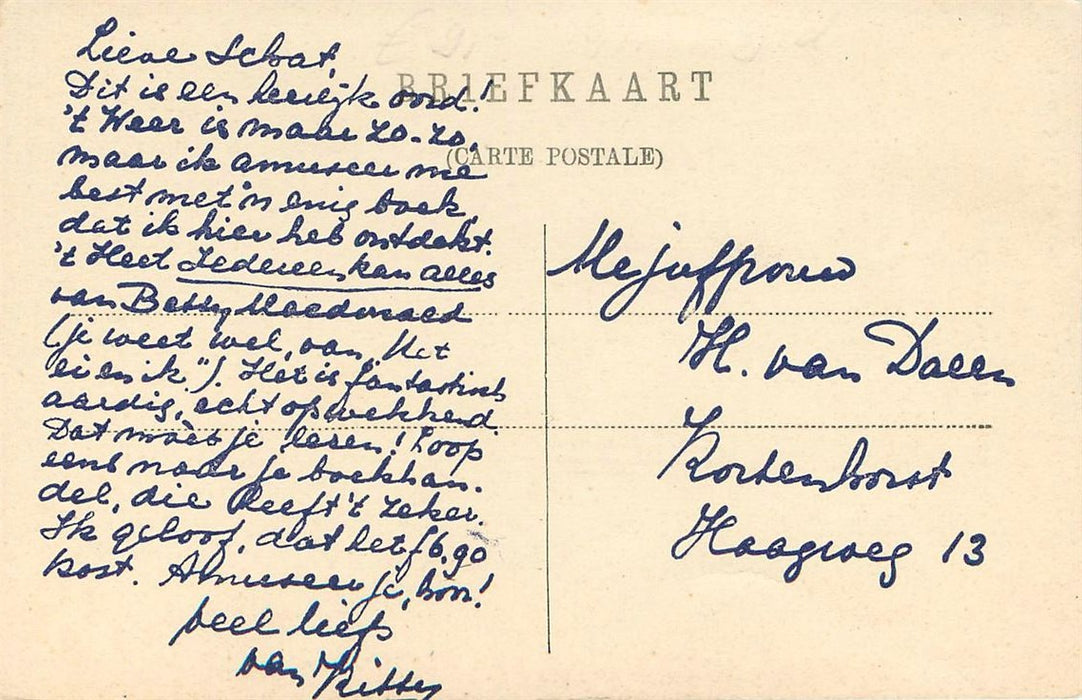 BRIEFKAART
(CARTE POSTALE)
Lieve Schat,
Dit is een heerlijk oord!
't Weer is maar zo-zo,
maar ik amuseer me
best met 'n enig boek,
dat ik hier heb ontdekt.
't Heet Iedereen kan alles
van Betty Macdonald
(je weet wel, van „Het
ei en ik"). Het is fantastisch
aardig, echt opwekkend.
Dat móet je lezen! Loop
eens naar je boekhan-
del, die heeft 't zeker.
Ik geloof, dat het f 6,90
kost. Amuseer je, hoor!
veel liefs
van Kitty
Mejuffrouw
H. van Dalen
Kortenhorst
Haagweg 13